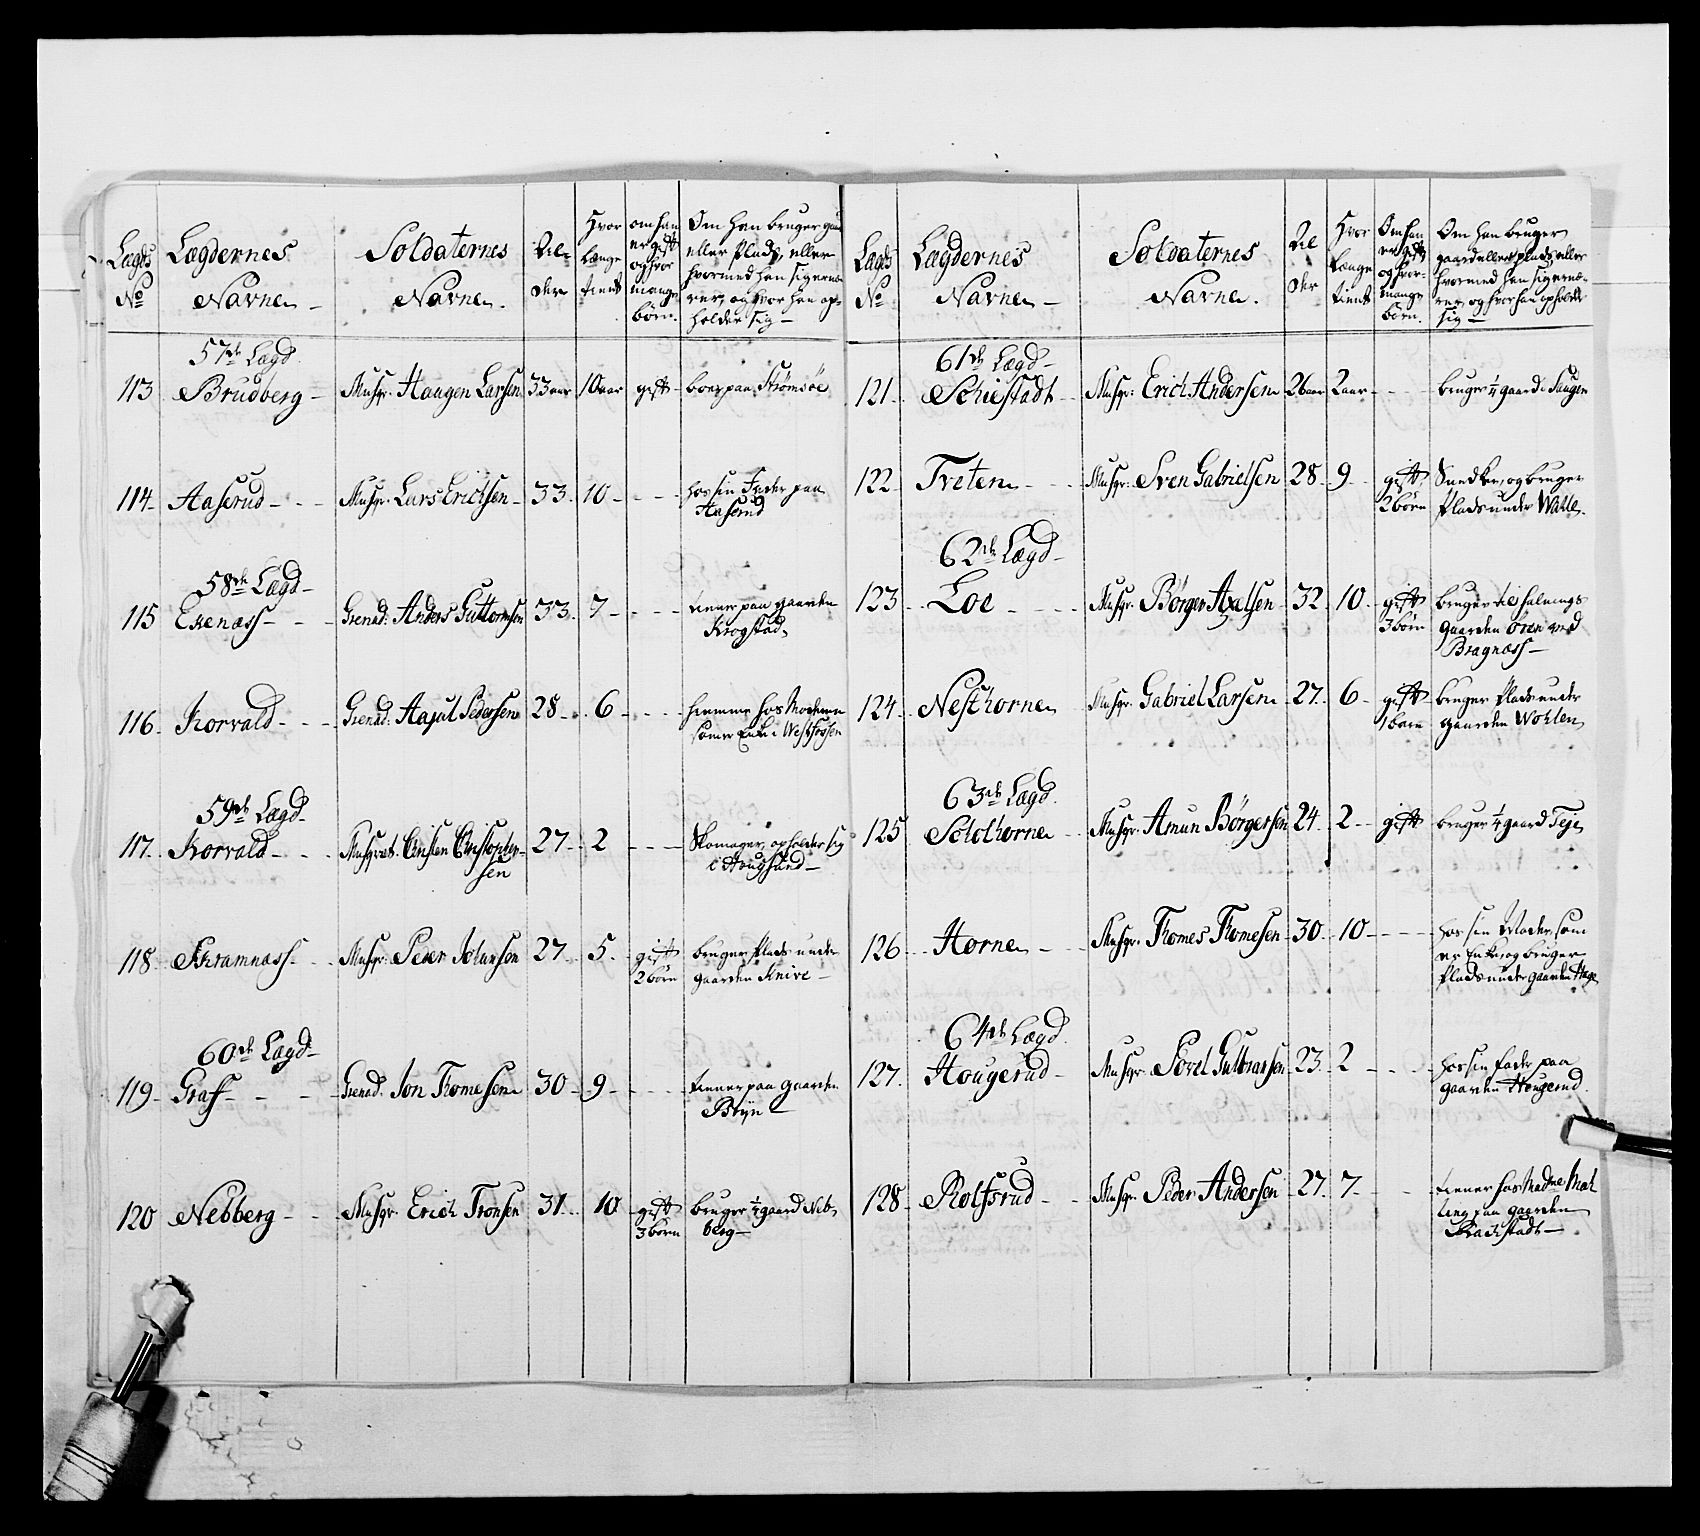 Lægds No
Lægdernes Navne
Soldaternes Navne.
Alder
Hvor længe tient
om han er gift og hvor mange børn.
Om han bruger gaard eller Plads, eller hvormed han sig ernærer, og hvor han opholder sig
57de Lægd
113 Brudberg Musqr. Haagen Larsen 33 aar 10 aar gift boer paa Strømsøe
114 Aaserud Musqr. Lars Erichsen 33. 10 hos sin Fader paa
Aaserud
58de Lægd
115 Ekenæss Grenad. Anders Guttormsen 33. 7 tiener paa gaarden
Krogstad
116 Korvald Grenad. Peders​en 28 6 hiemme hos Moderen
som er Enke i Westfossen
59de Lægd
117. Korvald Christen Christopher-
sen 27 2 Skomager, opholder sig
i Hougsund
118 Musqr. Peder Johansen 27 5. gift
2 børn bruger Plads under
gaarden Knive
60de Lægd
119 Graf Grenad. Jon Thomesen 30 9 tiener paa Gaarden
120 Nebberg Musqr. Erich Tronsen 31. 10 gift
3 børn bruger ½ gaard Neb-
berg
Lægds No
Lægdernes Navne
Soldaternes Navne.
Alder
Hvor længe tient
Om han er gift og hvor mange børn.
Om han bruger gaard eller plads, eller hvormed han sig ernærer, og hvor han opholder sig
61de Lægd
121. Schiestadt Musqr. Erich Andersen 26 aar 2 aar bruger ¼ gaard i Saugen
122 Treten Musqr. Sven Gabrielsen 28 9 gift
2 børn Snedker, og bruger
Plads under
62de Lægd
123 Loe Musqr. Børger Axelsen 32 10 gift
3 børn bruger
Gaarden Øren ved
Bragnæss
124. Nesthorne Musqr. Gabriel Larsen 27. 6 gift
1 barn bruger Plads under
gaarden
63de Lægd
125 Musqr. Amun Børgersen 24 2 gift bruger ¼ gaard
126 Horne Musqr. Thomes Thomesen 30 10 hos sin Moder, som
er Enke, og bruger
Plads under gaarden Hage
64de Lægd
127. Hougerud Musqr. Gulbransen 23. 2 hos sin Fader paa
gaarden Hougerud
128 Rolfsrud Musqr. Peder Andersen 27. 7 tiener hos Madme
paa gaarden